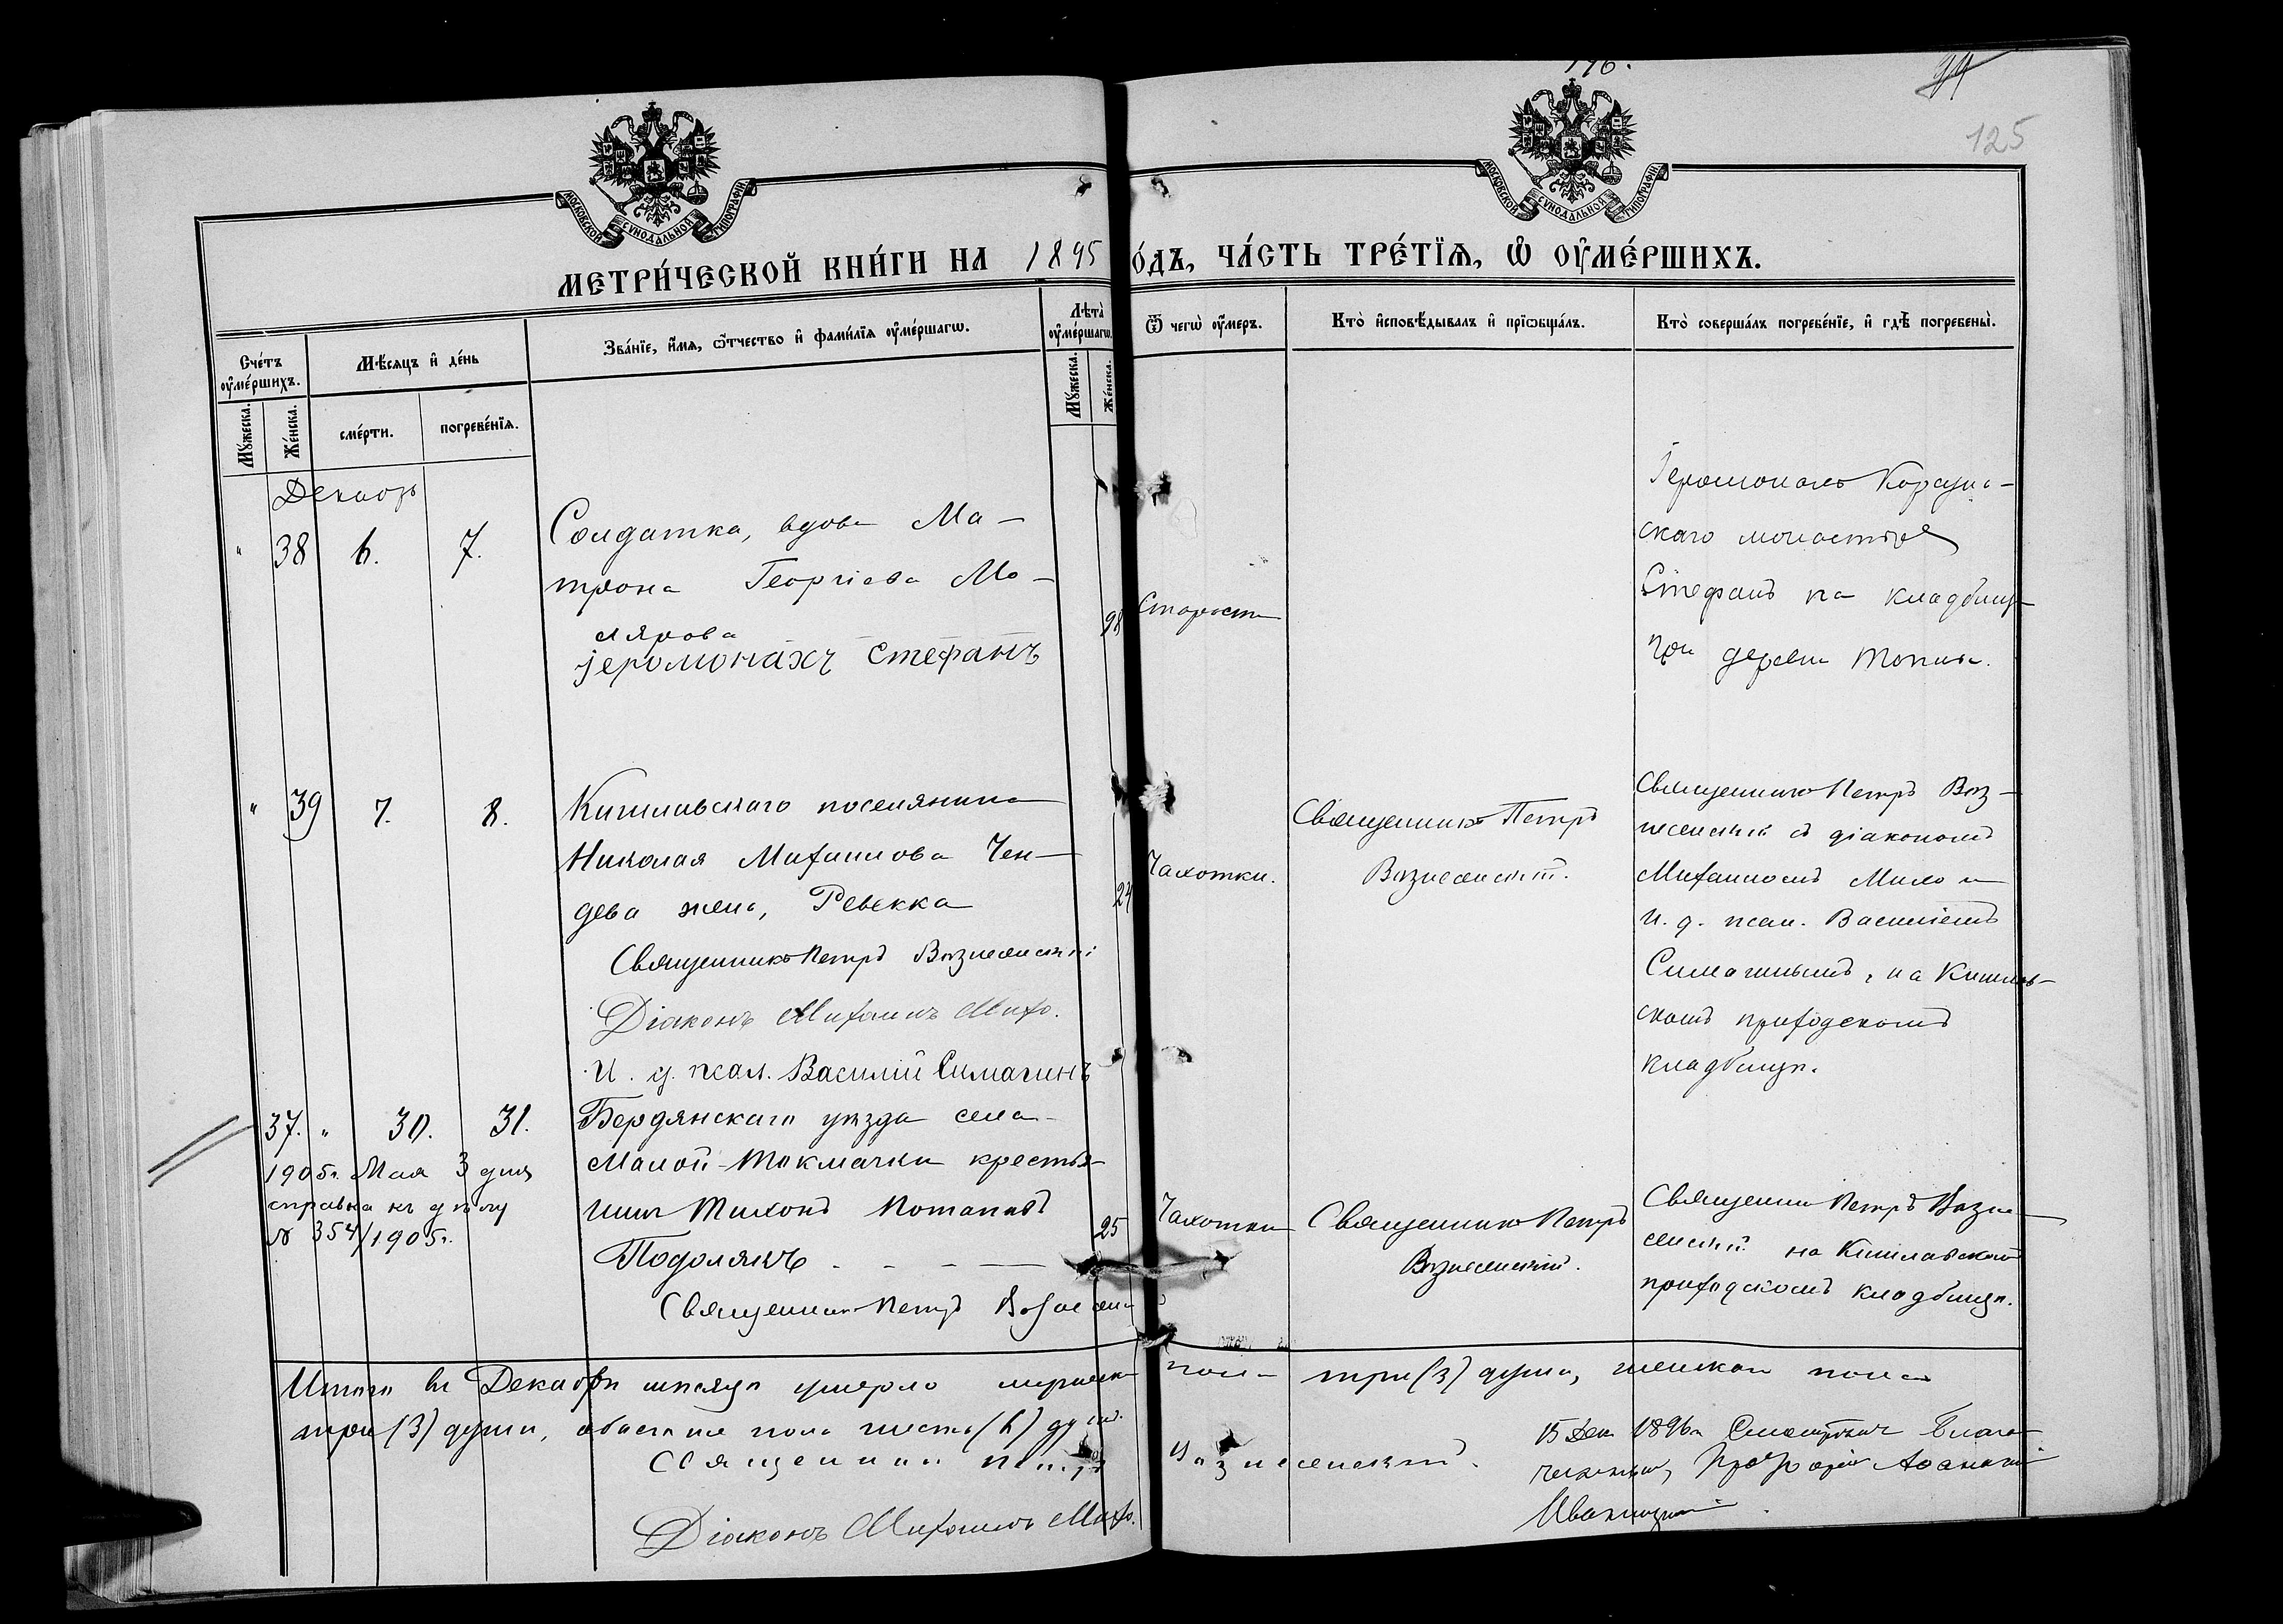 196.
94
125
МОСКОВСКОЙ СѴНОДАЛЬНОЙ ТИПОГРАФІИ.
МОСКОВСКОЙ СѴНОДАЛЬНОЙ ТИПОГРАФІИ.
МЕТРИ́ЧЕСКОЙ КНИ́ГИ НА 1895 О́ДЪ, ЧА́СТЬ ТРЕ́ТЇѦ, Ѡ҆ ОУ҆МЕ́РШИХЪ.
Сче́тъ оу҆ме́ршихъ.
Мꙋ́жеска.
Же́нска.
Мѣ́сѧцъ и҆ де́нь
сме́рти.
погребе́нїѧ.
Зва́нїе, и҆́мѧ, ѻ҆́тчество и҆ фами́лїѧ оу҆ме́ршагѡ.
Лѣ́та оу҆ме́ршагѡ.
Мꙋ́жеска.
Же́нска.
Ѿ чегѡ̀ оу҆́меръ.
Кто̀ и҆сповѣ́дывалъ и҆ прїѡбща́лъ.
Кто̀ соверша́лъ погребе́нїе, и҆ гдѣ̀ погребены̀.
Декабрь
" 38 6. 7.
Солдатка, вдова Ма-
трона Георгіева Мо-
лярова
іеромонахъ Стефанъ
98
Старости
Іеромонахъ Корсун-
скаго монастыря
Стефанъ на кладбищѣ
при деревни Топлы.
" 39 7. 8.
Кишлавскаго поселянина
Николая Михаилова Чен-
дева жена, Ревекка
Священникъ Петръ Вознесенскій
Діаконъ Михаилъ Михо.
И. д. псал. Василій Симагинъ
24
Чахотки.
Священникъ Петръ
Вознесенскій.
Священникъ Петръ Воз-
несенскій съ діакономъ
Михаиломъ Михо и
и. д. псал. Василіемъ
Симагинымъ, на Кишлав-
скомъ приходскомъ
кладбищѣ.
37. " 30. 31.
Бердянскаго уѣзда села
Малой-Токмачки крестья-
нинъ Тихонъ Потаповъ
Подолякъ
Священникъ Петръ Вознесен
1905г. Мая 3 дня
справка къ дѣлу
№ 354/1905г.
25
Чахотки
Священникъ Петръ
Вознесенскій.
Священник Петръ Возне-
сенскій на Кишлавскомъ
приходскомъ кладбищѣ.
Итого въ Декабрѣ мѣсяцѣ умерло мужска пола три (3) души, женскаго пола
три (3) души, обоего пола шесть (6) душъ.
Священникъ Петръ Вознесенскій.
Діаконъ Михаилъ Михо.
15 Дек 1896г. Смотрѣлъ Благо-
чинный, Протоіерей